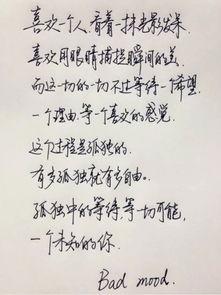 喜欢一个人,看着一抹光景发呆.
喜欢用眼睛捕捉瞬间的美.
而这一切的一切不过等待一个希望.
一个理由,等一个喜欢的感觉.
这个过程是孤独的.
有多孤独就有多自由.
孤独中的等待,等一切可能,
一个未知的你.
Bad mood.